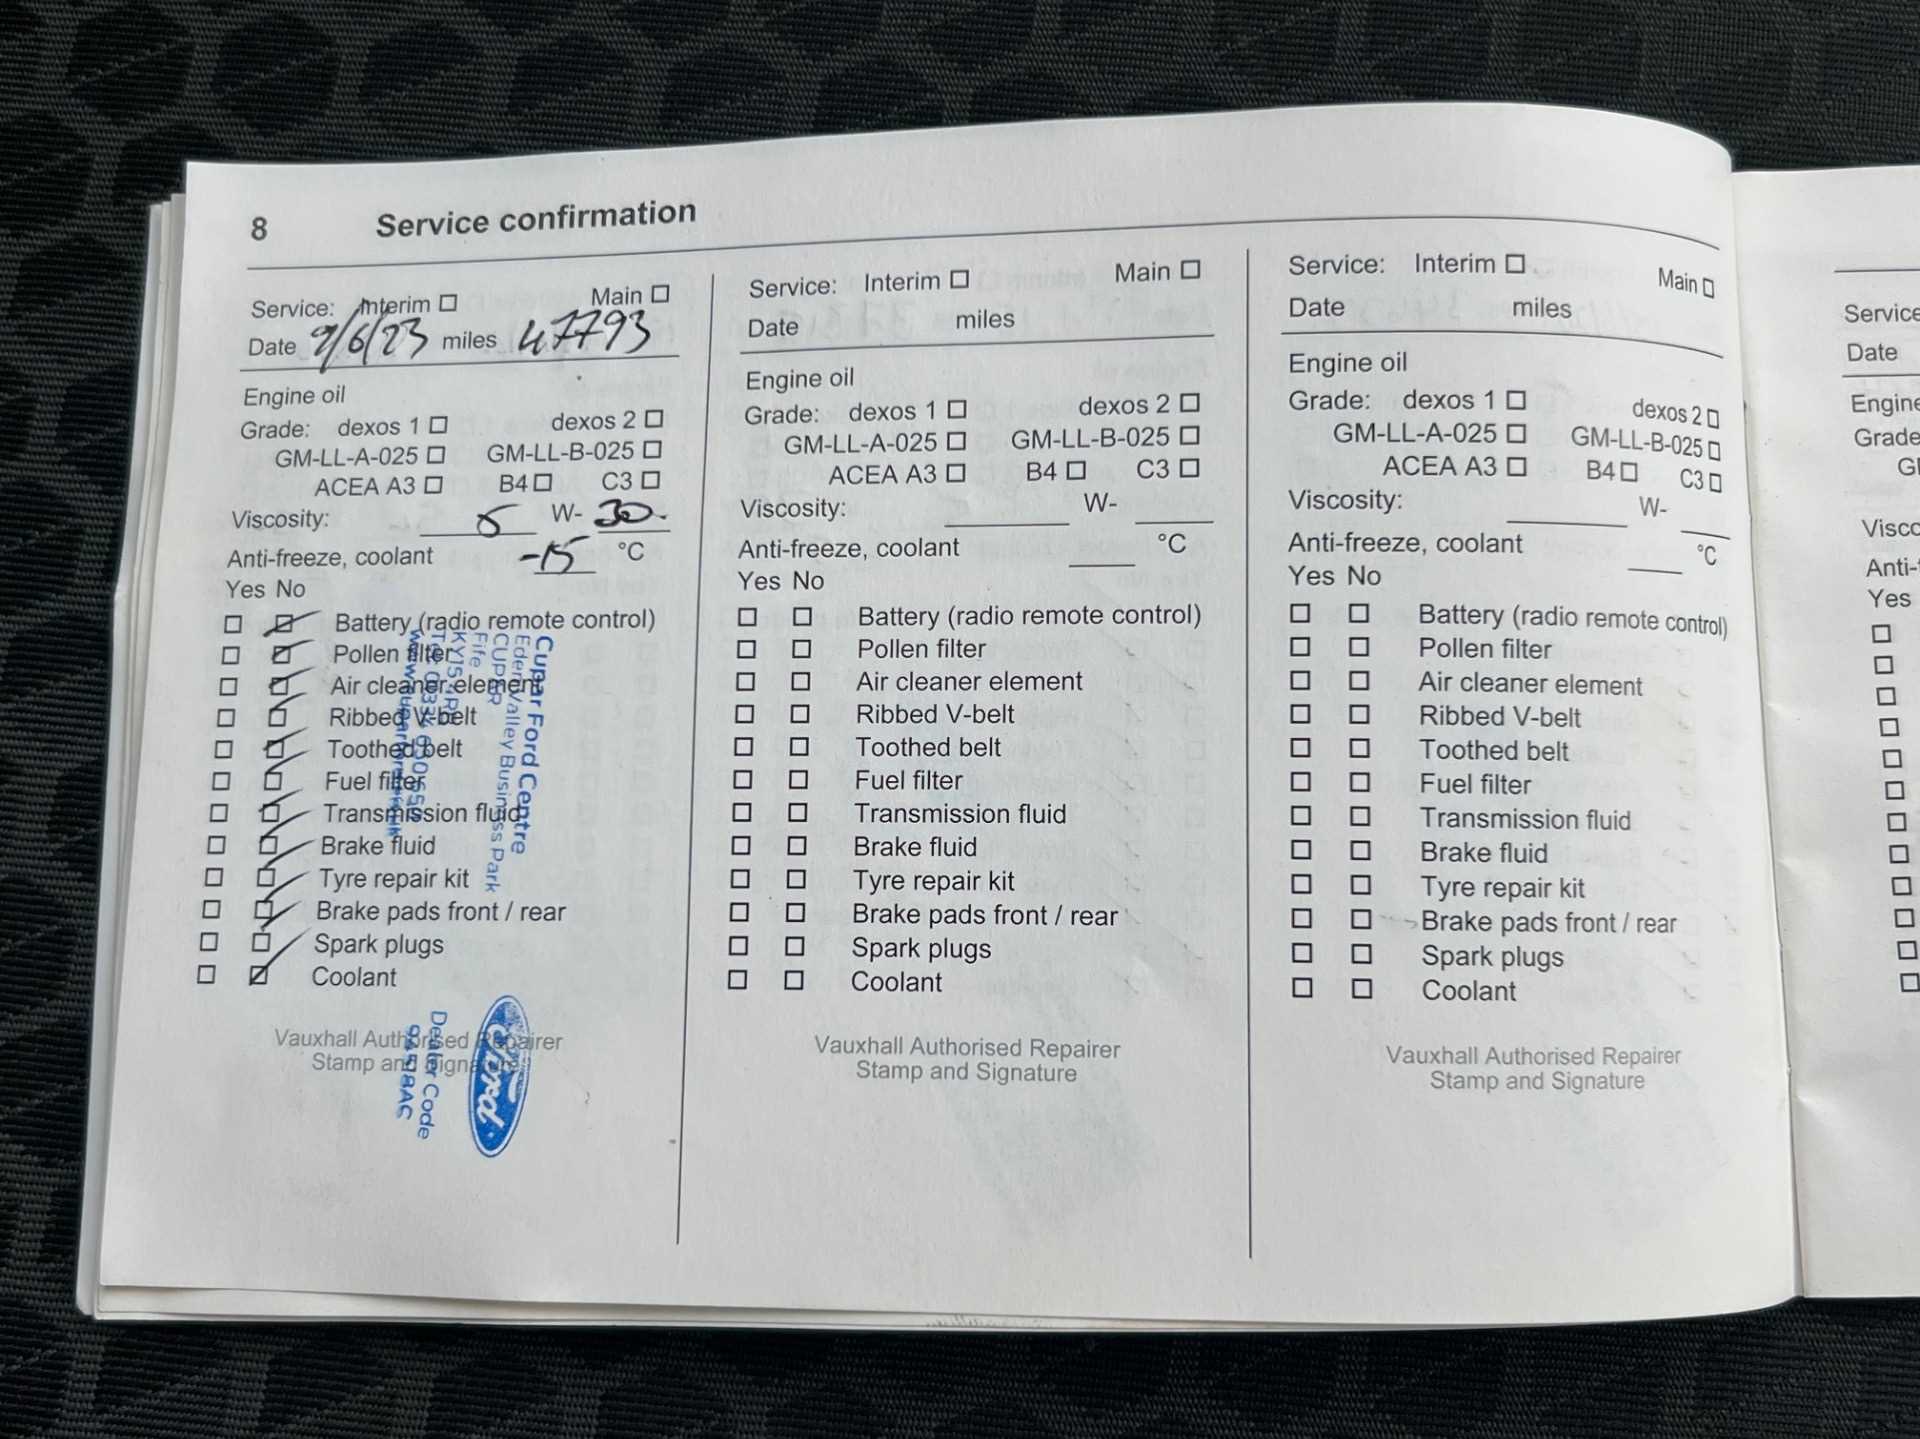 8 Service confirmation
Service: Interim ☐ Main ☐
Date 9/6/23 miles 47793
Engine oil
Grade: dexos 1 ☐ dexos 2 ☐
GM-LL-A-025 ☐ GM-LL-B-025 ☐
ACEA A3 ☐ B4 ☐ C3 ☐
Viscosity: 5 W- 30
Anti-freeze, coolant -15 °C
Yes No
Battery (radio remote control)
Pollen filter
Air cleaner element
Ribbed V-belt
Toothed belt
Fuel filter
Transmission fluid
Brake fluid
Tyre repair kit
Brake pads front / rear
Spark plugs
Coolant
Vauxhall Authorised Repairer
Stamp and Signature
Cupar Ford Centre
Eden Valley Business Park
CUPAR
Fife
Ford
Dealer Code
Service: Interim ☐ Main ☐
Date miles
Engine oil
Grade: dexos 1 ☐ dexos 2 ☐
GM-LL-A-025 ☐ GM-LL-B-025 ☐
ACEA A3 ☐ B4 ☐ C3 ☐
Viscosity: W-
Anti-freeze, coolant °C
Yes No
Battery (radio remote control)
Pollen filter
Air cleaner element
Ribbed V-belt
Toothed belt
Fuel filter
Transmission fluid
Brake fluid
Tyre repair kit
Brake pads front / rear
Spark plugs
Coolant
Vauxhall Authorised Repairer
Stamp and Signature
Service: Interim ☐ Main ☐
Date miles
Engine oil
Grade: dexos 1 ☐ dexos 2 ☐
GM-LL-A-025 ☐ GM-LL-B-025 ☐
ACEA A3 ☐ B4 ☐ C3 ☐
Viscosity: W-
Anti-freeze, coolant °C
Yes No
Battery (radio remote control)
Pollen filter
Air cleaner element
Ribbed V-belt
Toothed belt
Fuel filter
Transmission fluid
Brake fluid
Tyre repair kit
Brake pads front / rear
Spark plugs
Coolant
Vauxhall Authorised Repairer
Stamp and Signature
Service
Date
Engine
Grade
Visco
Anti-
Yes